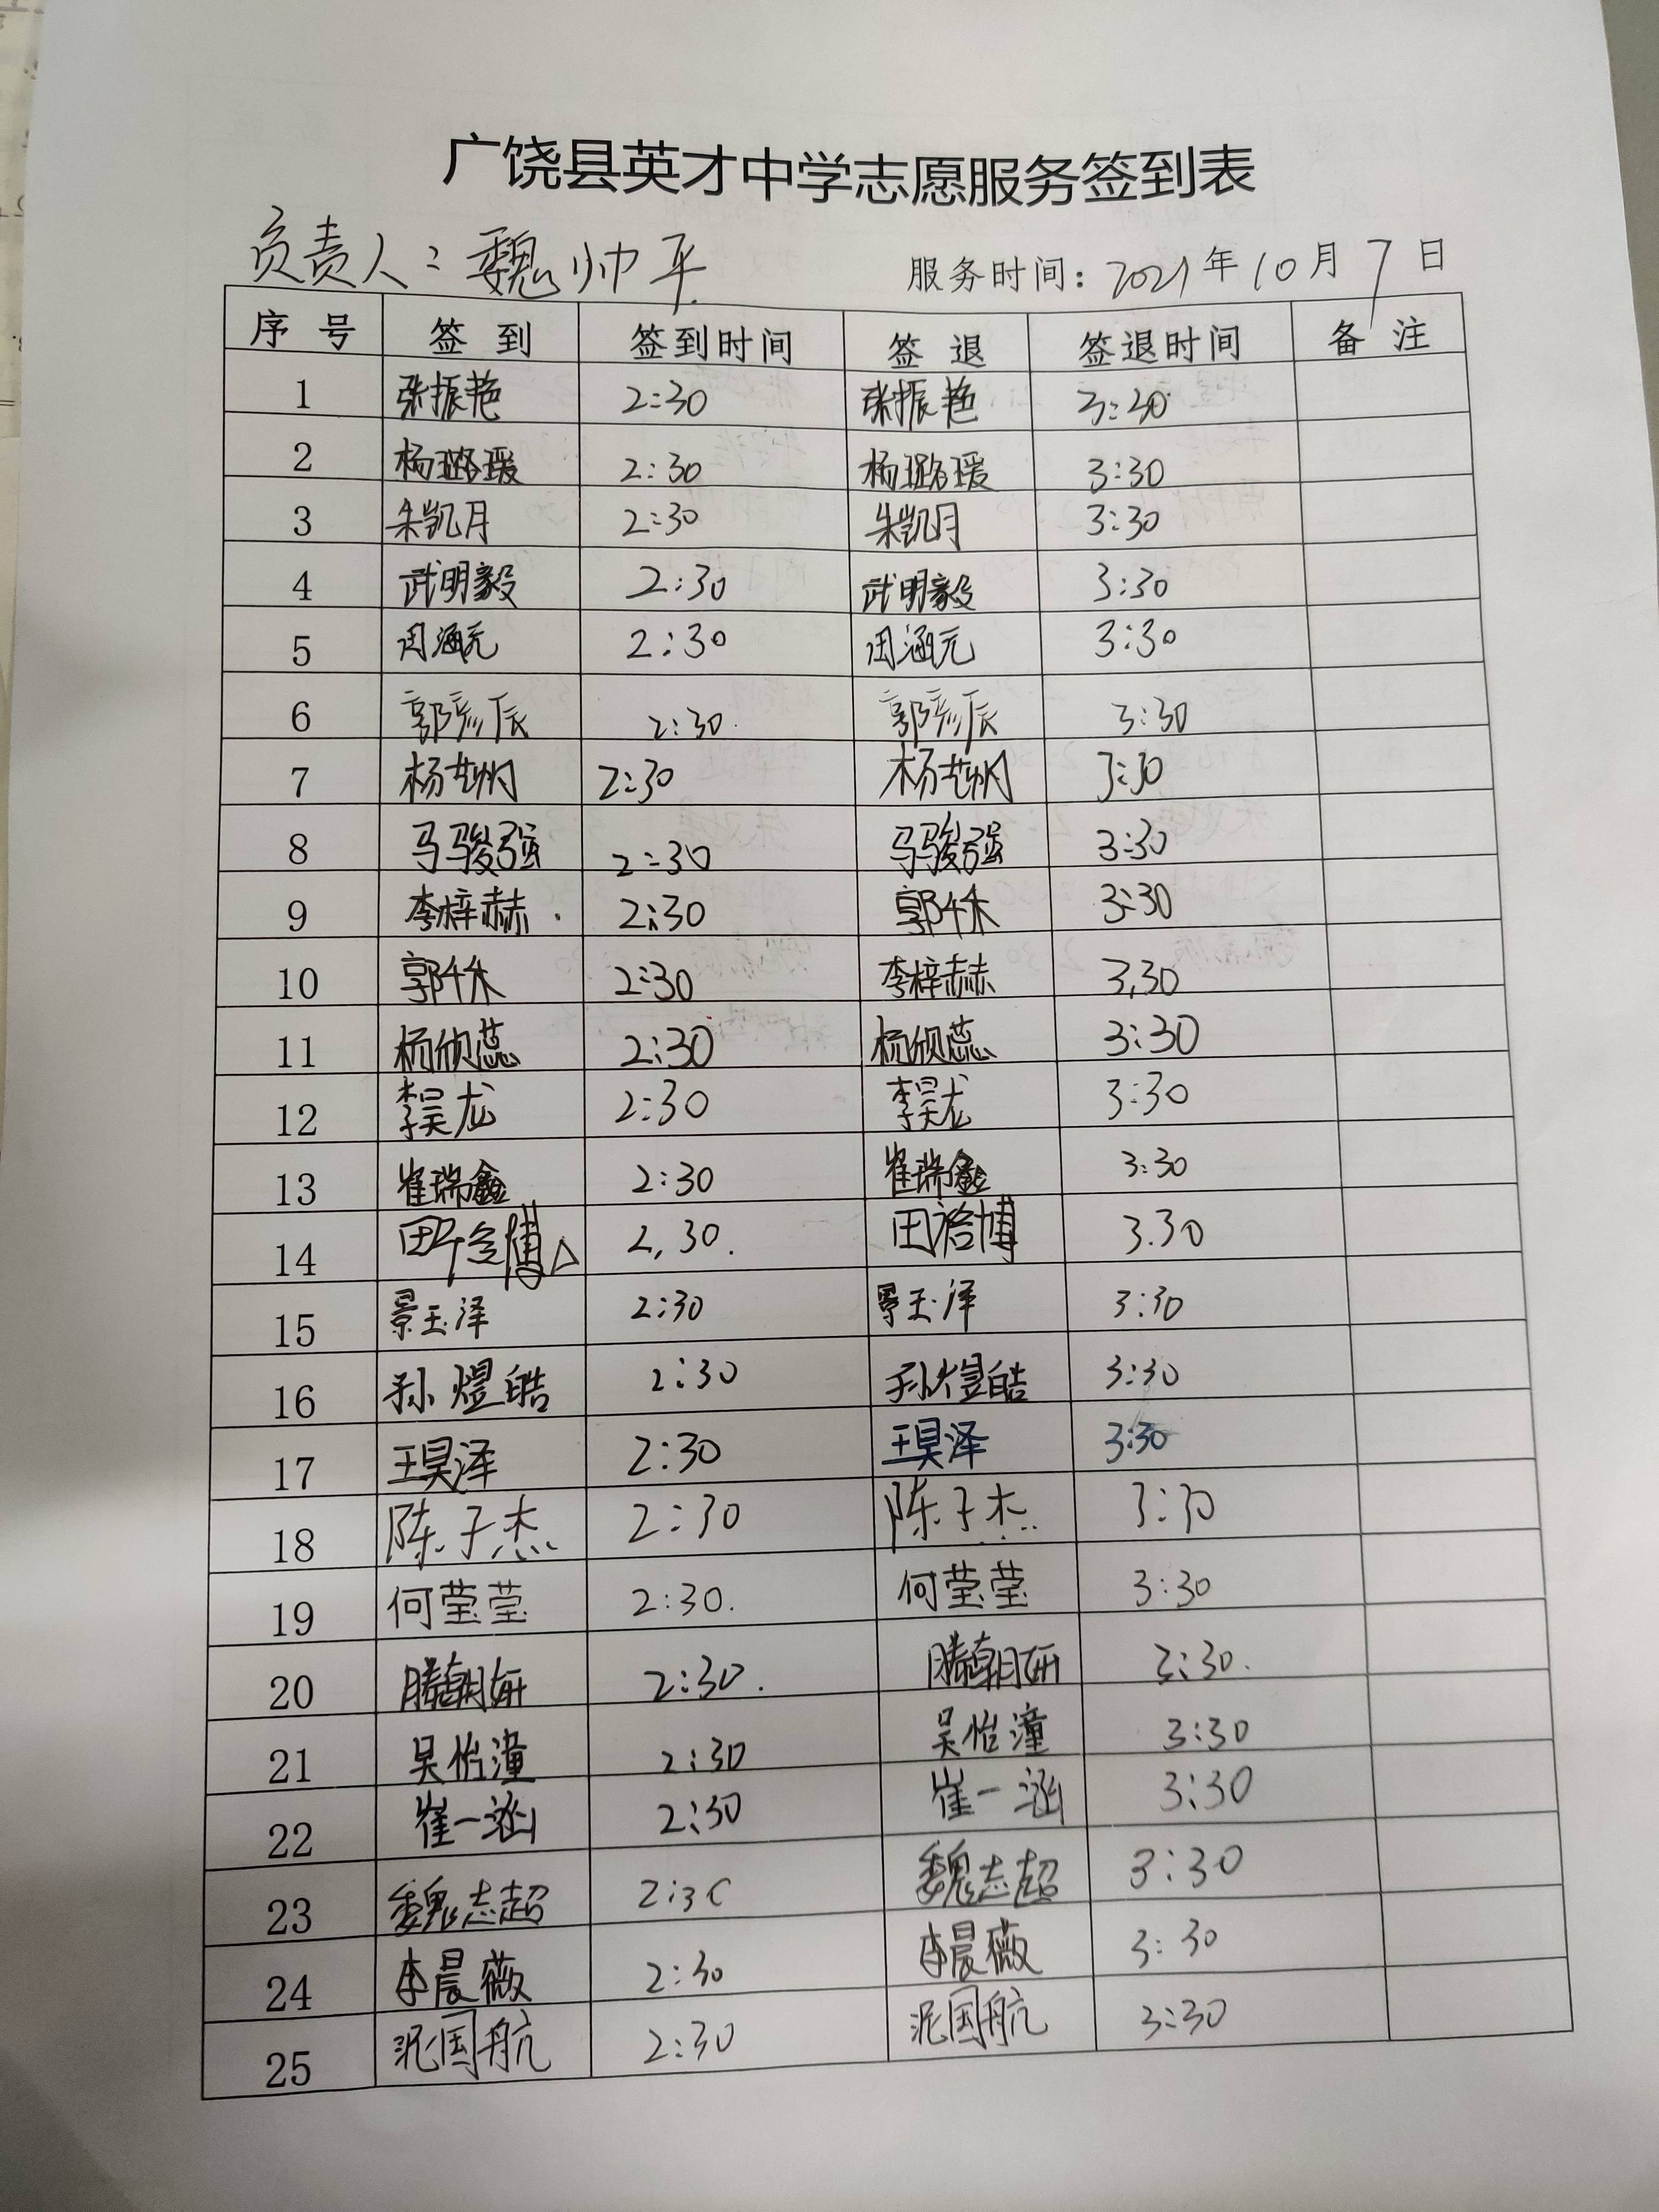 广饶县英才中学志愿服务签到表
负责人：魏帅平 服务时间：2021年10月7日
序号 签到 签到时间 签退 签退时间 备注
1 张振艳 2:30 张振艳 3:30
2 杨璐瑗 2:30 杨璐瑗 3:30
3 朱凯月 2:30 朱凯月 3:30
4 武明毅 2:30 武明毅 3:30
5 周涵元 2:30 周涵元 3:30
6 郭彦辰 2:30 郭彦辰 3:30
7 杨 2:30 杨 3:30
8 马骏强 2:30 马骏强 3:30
9 李梓赫 2:30 郭 3:30
10 郭 2:30 李梓赫 3,30
11 杨欣蕊 2:30 杨欣蕊 3:30
12 李昊龙 2:30 李昊龙 3:30
13 崔瑞鑫 2:30 崔瑞鑫 3:30
14 田 博 2,30. 田裕博 3.30
15 景玉泽 2:30 景玉泽 3:30
16 孙煜皓 2:30 孙煜皓 3:30
17 王昊泽 2:30 王昊泽 3:30
18 陈子杰 2:30 陈子杰 3:30
19 何莹莹 2:30. 何莹莹 3:30
20 滕朝妍 2:30. 滕朝妍 3:30.
21 吴怡潼 2:30 吴怡潼 3:30
22 崔一涵 2:30 崔一涵 3:30
23 魏志超 2:30 魏志超 3:30
24 李晨薇 2:30 李晨薇 3:30
25 国航 2:30 国航 3:30